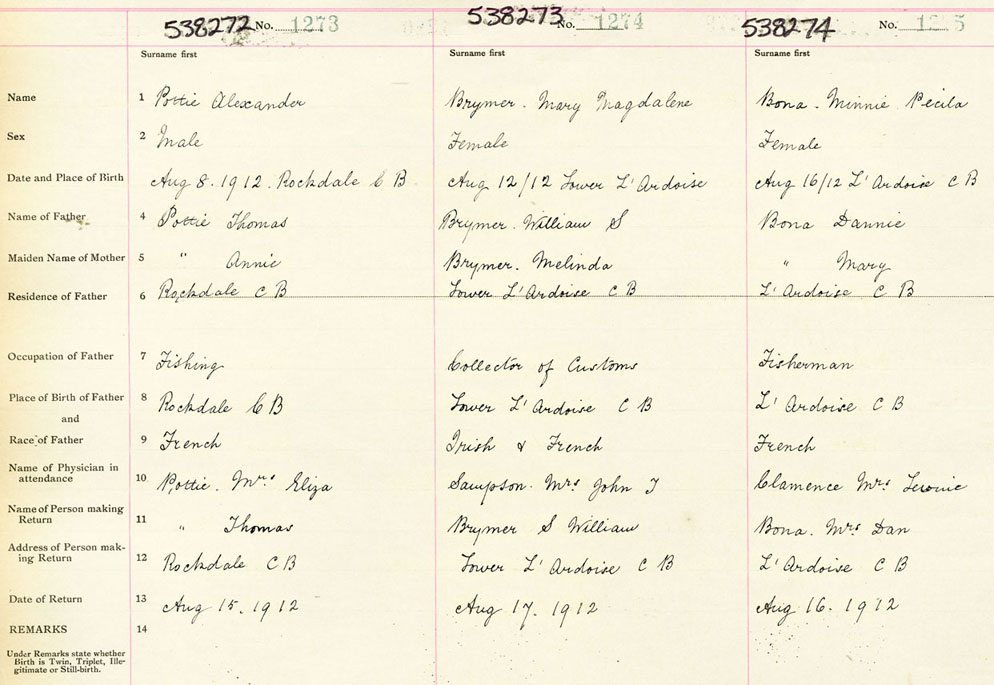 538272 No. 1273 538273 No. 1274 538274 No.
Surname first Surname first Surname first
Name 1 Pottie Alexander Brymer. Mary Magdalene Bona. Minnie
Sex 2 Male Female Female
Date and Place of Birth Aug 8. 1912. Rockdale C B. Aug 12/12 Lower L'Ardoise Aug 16/12 L'Ardoise C B
Name of Father 4 Pottie Thomas Brymer. William S Bona Dannie
Maiden Name of Mother 5 " Annie Brymer. Melinda " Mary
Residence of Father 6 Rockdale C B Lower L'Ardoise C B L'Ardoise C B
Occupation of Father 7 Fishing Collector of Customs Fisherman
Place of Birth of Father 8 Rockdale C B Lower L'Ardoise C B L'Ardoise C B
and
Race of Father 9 French Irish & French French
Name of Physician in
attendance 10 Pottie. Mrs Eliza Sampson. Mrs John J Clamence Mrs
Name of Person making
Return 11 " Thomas Brymer S William Bona. Mrs Dan
Address of Person mak-
ing Return 12 Rockdale C B Lower L'Ardoise C B L'Ardoise C B
Date of Return 13 Aug 15. 1912 Aug 17. 1912 Aug 16. 1912
REMARKS 14
Under Remarks state whether
Birth is Twin, Triplet, Ille-
gitimate or Still-birth.